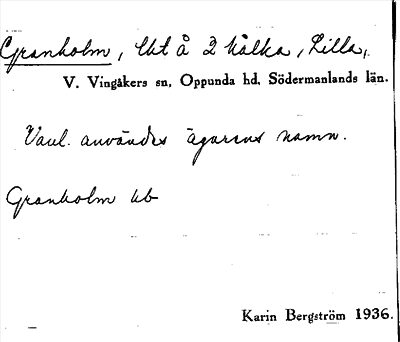 Granholm, lht å 2 Kälka, Lilla,
V. Vingåkers sn, Oppunda hd, Södermanlands län.
Vanl. användes ägarens namn.
Granholm kb
Karin Bergström 1936.